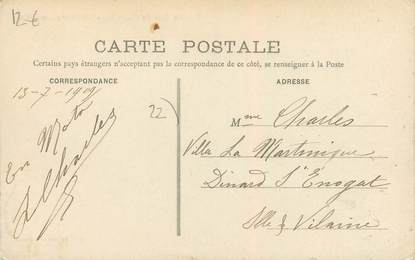 12 €
CARTE POSTALE
Certains pays étrangers n'acceptant pas la correspondance de ce côté, se renseigner à la Poste
CORRESPONDANCE
ADRESSE
13-7-1909
En Moto
Charles
22)
Mme Charles
Villa La Martinique
Dinard St Enogat
Ille & Vilaine